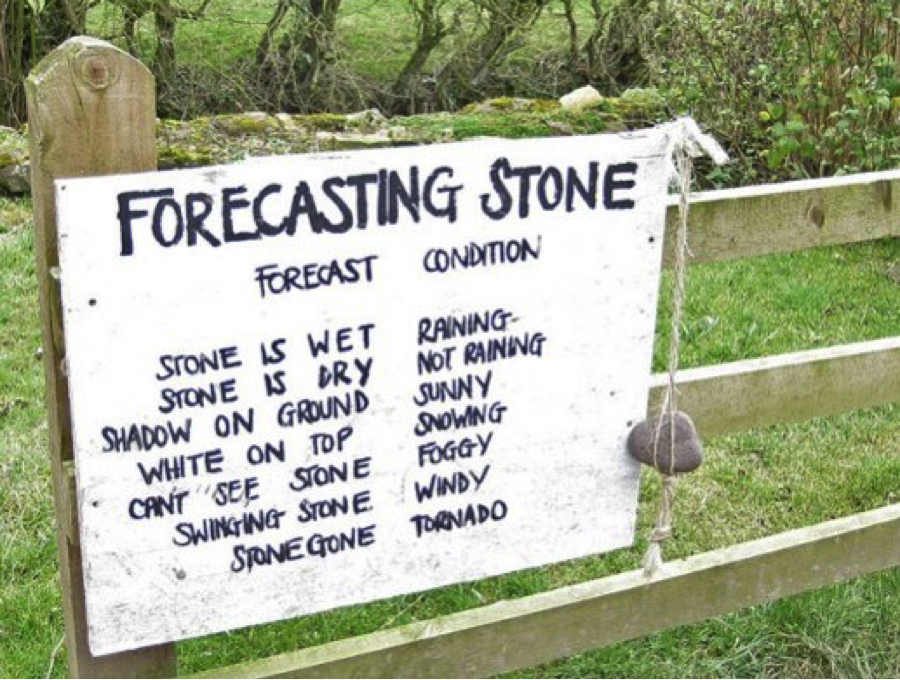 FORECASTING STONE
FORECAST CONDITION
STONE IS WET RAINING
STONE IS DRY NOT RAINING
SHADOW ON GROUND SUNNY
WHITE ON TOP SNOWING
CANT SEE STONE FOGGY
SWINGING STONE WINDY
STONE GONE TORNADO